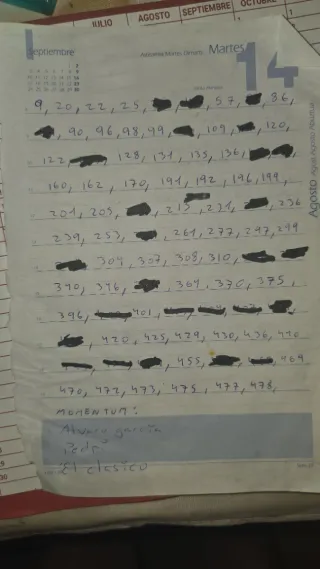 JULIO AGOSTO SEPTIEMBRE OCTUBRE
Septiembre
Martes
14
Agosto
9, 20, 22, 25, 57, 86,
90, 96, 98, 99, 109, 120,
122 128, 131, 135, 136,
160, 162, 170, 191, 192, 196, 199,
201, 205, 213, 231, 236
239, 253, 261, 277, 297, 299
304, 307, 308, 310, 
340, 346, 364, 370, 375,
396, 401,
420, 425, 429, 430, 436, 440
455, 469
470, 472, 473, 475, 477, 478,
MOMENTUM:
Alvaro garcía
Pedri
El clasico